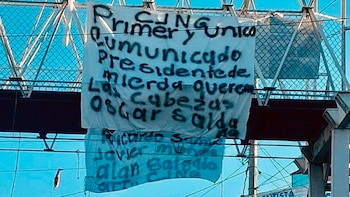 CJNG
Primer y unico
Comunicado
Presidente de
mierda queremos
Las Cabezas
Oscar Salda
Ricardo
Javier
alan Salgado